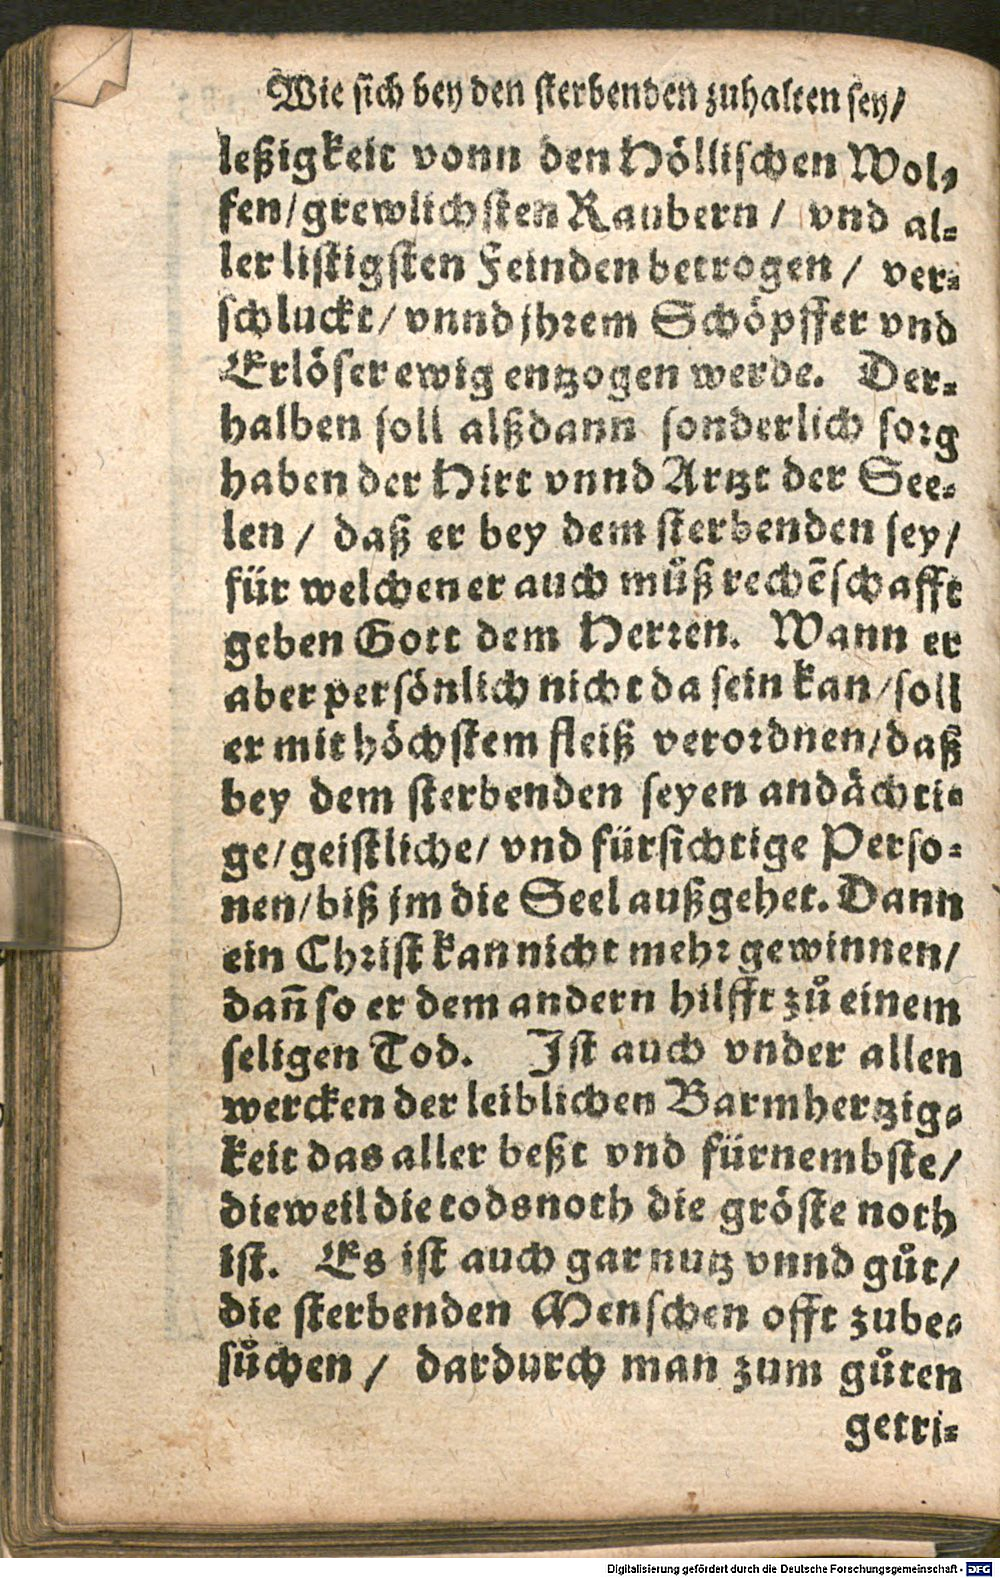 Wie sich bey den sterbenden zuhalten sey/
leßigkeit vonn den Höllischen Wol-
fen/grewlichsten Raubern / vnd al-
ler listigsten Feinden betrogen / ver-
schluckt/ vnnd jhrem Schöpffer vnd
Erlöser ewig entzogen werde. Der-
halben soll alßdann sonderlich sorg
haben der Hirt vnnd Artzt der See-
len / daß er bey dem sterbenden sey/
für welchen er auch můß rechẽschafft
geben Gott dem Herren. Wann er
aber persönlich nicht da sein kan/soll
er mit höchstem fleiß verordnen/daß
bey dem sterbenden seyen andächti-
ge/geistliche/ vnd fürsichtige Perso-
nen/biß jm die Seel außgehet. Dann
ein Christ kan nicht mehr gewinnen/
dañ so er dem andern hilfft zů einem
seligen Tod. Ist auch vnder allen
wercken der leiblichen Barmhertzig-
keit das aller beßt vnd fürnembste/
dieweil die todsnoth die gröste noth
ist. Es ist auch gar nutz vnnd gůt/
die sterbenden Menschen offt zube-
sůchen / dardurch man zum gůten
getri-
Digitalisierung gefördert durch die Deutsche Forschungsgemeinschaft - DFG